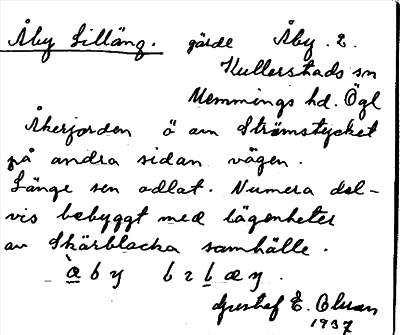 Åby Lilläng. gärde Åby. 2.
Kullerstads sn
Memmings hd. Ögl
Åkerjorden ö om Strömstycket
på andra sidan vägen.
Länge sen odlat. Numera del-
vis bebyggt med lägenheter
av Skärblacka samhälle.
Gustaf E. Olsson
1937